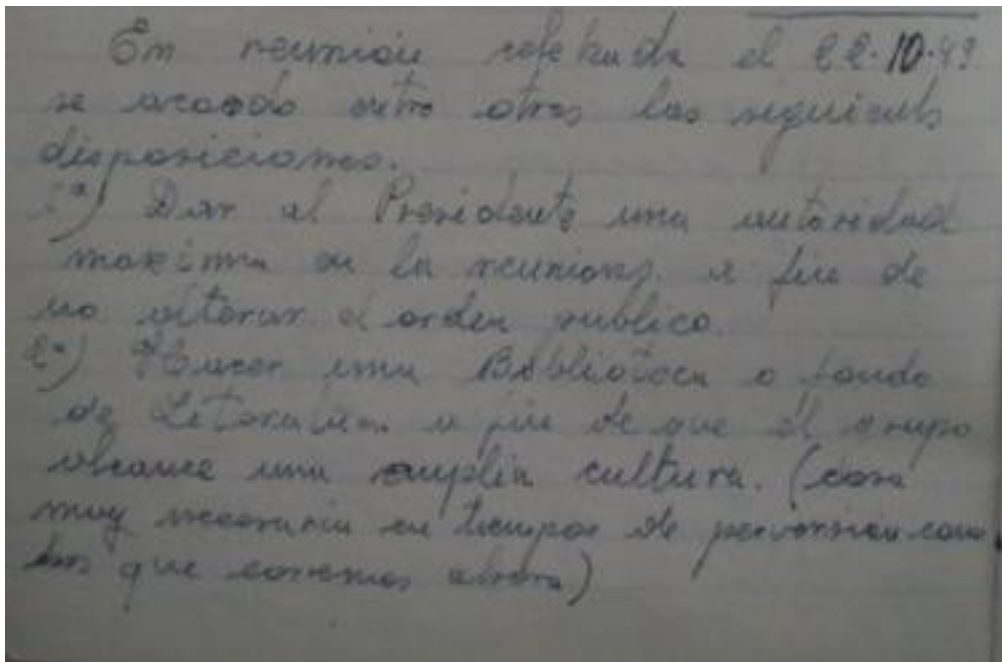 En reunion celebrada el 22-10-49
se acordo entre otras las siguientes
disposiciones.
1ª) Dar al Presidente una autoridad
maxima en la reunion, a fin de
no alterar el orden publico.
2ª) Hacer una Biblioteca o fondo
de Literatura a fin de que el grupo
alcance una amplia cultura. (cosa
muy necesaria en tiempos de perversion como
los que corremos ahora)